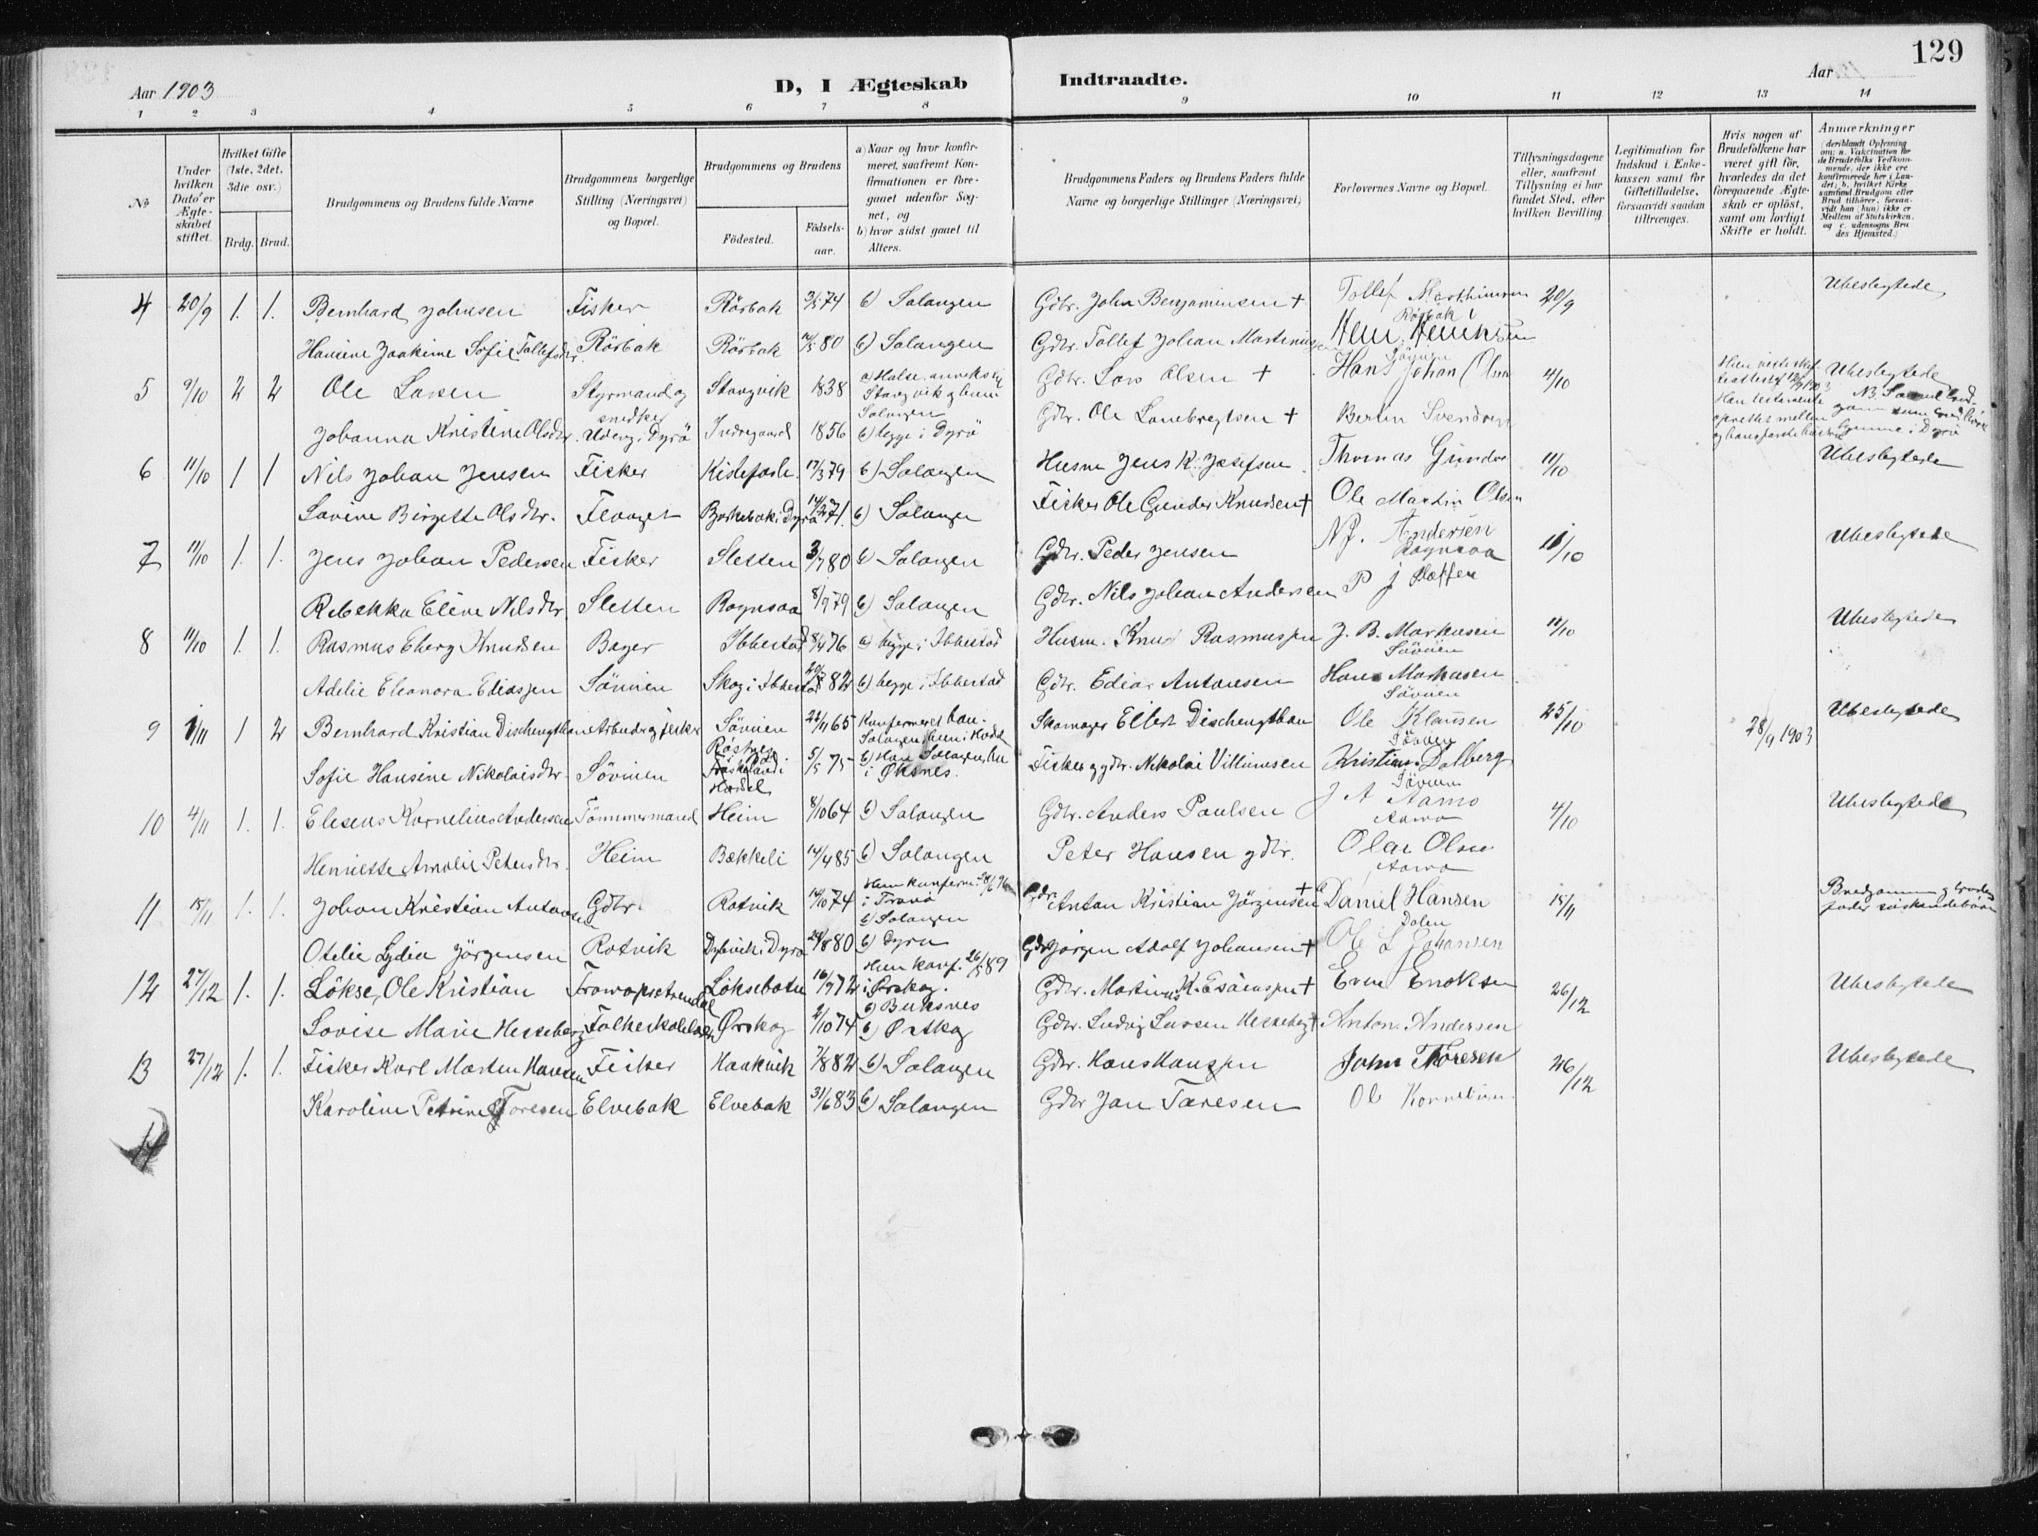 129
Aar 1903
D, I Ægteskab Indtraadte.
Aar
1 2 3 4 5 6 7 8 9 10 11 12 13 14
No
Under hvilken Dato er Ægteskabet stiftet.
Hvilket Gifte (1ste, 2det, 3die osv.)
Brdg. Brud.
Brudgommens og Brudens fulde Navne
Brudgommens borgerlige Stilling (Næringsvei) og Bopæl.
Brudgommens og Brudens
Fødested.
Fødselsaar.
a) Naar og hvor konfirmeret, saafremt Konfirmationen er foregaaet udenfor Sognet, og
b) hvor sidst gaaet til Alters.
Brudgommens Faders og Brudens Faders fulde Navne og borgerlige Stillinger (Næringsvei)
Forlovernes Navne og Bopæl.
Tillysningsdagene eller, saafremt Tillysning ei har fundet Sted, efter hvilken Bevilling.
Legitimation for Indskud i Enkekassen samt for Giftetilladelse, forsaavidt saadan tiltrænges.
Hvis nogen af Brudefolkene har været gift før, hvorledes da det foregaaende Ægteskab er opløst, samt om lovligt Skifte er holdt.
Anmærkninger (deriblandt Oplysning om: a. Vakcination for de Brudefolks Vedkommende, der ikke ere konfirmerede her i Landet; b. hvilket Kirkesamfund Brudgom eller Brud tilhører, forsaavidt han (hun) ikke er Medlem af Statskirken, og c. udensogns Brudes Hjemsted.)
4 20/9 1. 1. Bernhard Johnsen Fisker Rörbak 3/5 74 b) Salangen Gdbr. John Benjaminsen + Tollef Marthinsen Rörbak 20/9 Ubeslegtede
Hansine Joakime Sofie Tollefsdtr. Rörbak Rörbak 80 b) Salangen Gdbr. Tollef Johan Martinus
5 9/10 2 2 Ole Larsen Styrmand og snedker Stangvik 1838 a) Halse anneks til Stangvik Salangen Gdbr. Lars Olsen + Hans Johan Olsen 4/10 Ubeslegtede
Johanna Kristine Olsdtr. i Dyrö Indregaard 1856 b) begge i Dyrö Gdbr. Ole Lanebregtsen + Bertin Svendsen
6 11/10 1 1 Nils Johan Jensen Fisker Kistefosle 17/3 79 b) Salangen Husm. Jens K. Josefsen Thomas Gunder 11/10 Ubeslegtede
Lovine Birgitte Olsdtr. Flaaget Bjorkebak i Dyrö 14/2 71 b) Salangen Fisker Ole Gunder Knudsen + Ole Martin Olsen
7 11/10 1. 1. Jens Johan Pedersen Fisker Sletten 3/7 80 b) Salangen Gdbr. Peder Jensen N J. Andersen Ragnsaa 11/10 Ubeslegtede
Rebekka Eline Nilsdtr. Sletten Ragnsaa 8/9 79 b) Salangen Gdbr. Nils Johan Andersen P J
8 11/10 1. 1. Rasmus Eberg Knudsen Bager Ibbestad 8/4 76 a) begge i Ibbestad Husm. Knud Rasmussen J. B. Markusen Sövein 11/10 Ubeslegtede
Adelie Eleonora Ediassen Sövein Skog i Ibbestad 82 b) begge i Ibbestad Gdbr. Edias Antonsen Hans Markusen Sövein
9 1/11 1 2 Bernhard Kristian Dischengthun Arbeider og fisker Sövein 65 Konfirmeret han Salangen, hun i Hadsel Skomager Eilert Dischengthun Ole Klausen Sövein 25/10 28/9 1903 Ubeslegtede
Sofie Hansine Nikolaisdtr. Sövein Hadsel 5/5 75 b) Han Salangen, hun i Øksnes. Fisker og gdbr. Nikolai Villumsen Kristian Dalberg Sövein
10 4/11 1. 1. Elesens Kornelius Andersen Tömmermand Heim 8/10 64 b) Salangen Gdbr. Anders Paulsen J A Aamo Aamo 4/10 Ubeslegtede
Henriette Amalie Petersdtr. Heim Bækkeli 14/4 85 b) Salangen Peter Hansen gdbr. Olai Olsen Aamo
11 15/11 1. 1. Johan Kristian Antonsen Gdbr. Rotvik 14/10 74 Han konfirm. i Tranö b) Salangen Gdbr. Anton Kristian Jörgensen + Daniel Hansen Dalen 15/11 Brudgommen og brudens fader söskendebörn
Otelie Lydia Jörgensen Rotvik Dybvik i Dyrö 80 b) Dyrö Gdbr. Jörgen Adolf Johansen + Ole L Johansen
12 27/12 1. 1. Lökse, Ole Kristian Löksebotn 16/9 72 Hun konf. 26/5 89 i Ørskog. b) Buksnes Gdbr. Martinus K. Esaiassen + Even Enoksen 26/12 Ubeslegtede
Lovise Marie Hesseberg Folkeskole Ørskog 2/10 74 b) Ørskog Gdbr. Ludvig Larsen Hesseberg + Anton Andersen
13 27/12 1. 1. Fisker Karl Martin Hansen Fisker Haakvik 7/8 82 b) Salangen Gdbr. Hans Hanssen John Thoresen 26/12 Ubeslegtede
Karoline Petrine Toresen Elvebak Elvebak 31/6 83 b) Salangen Gdbr Jan Taresen Ole Kornelius
14